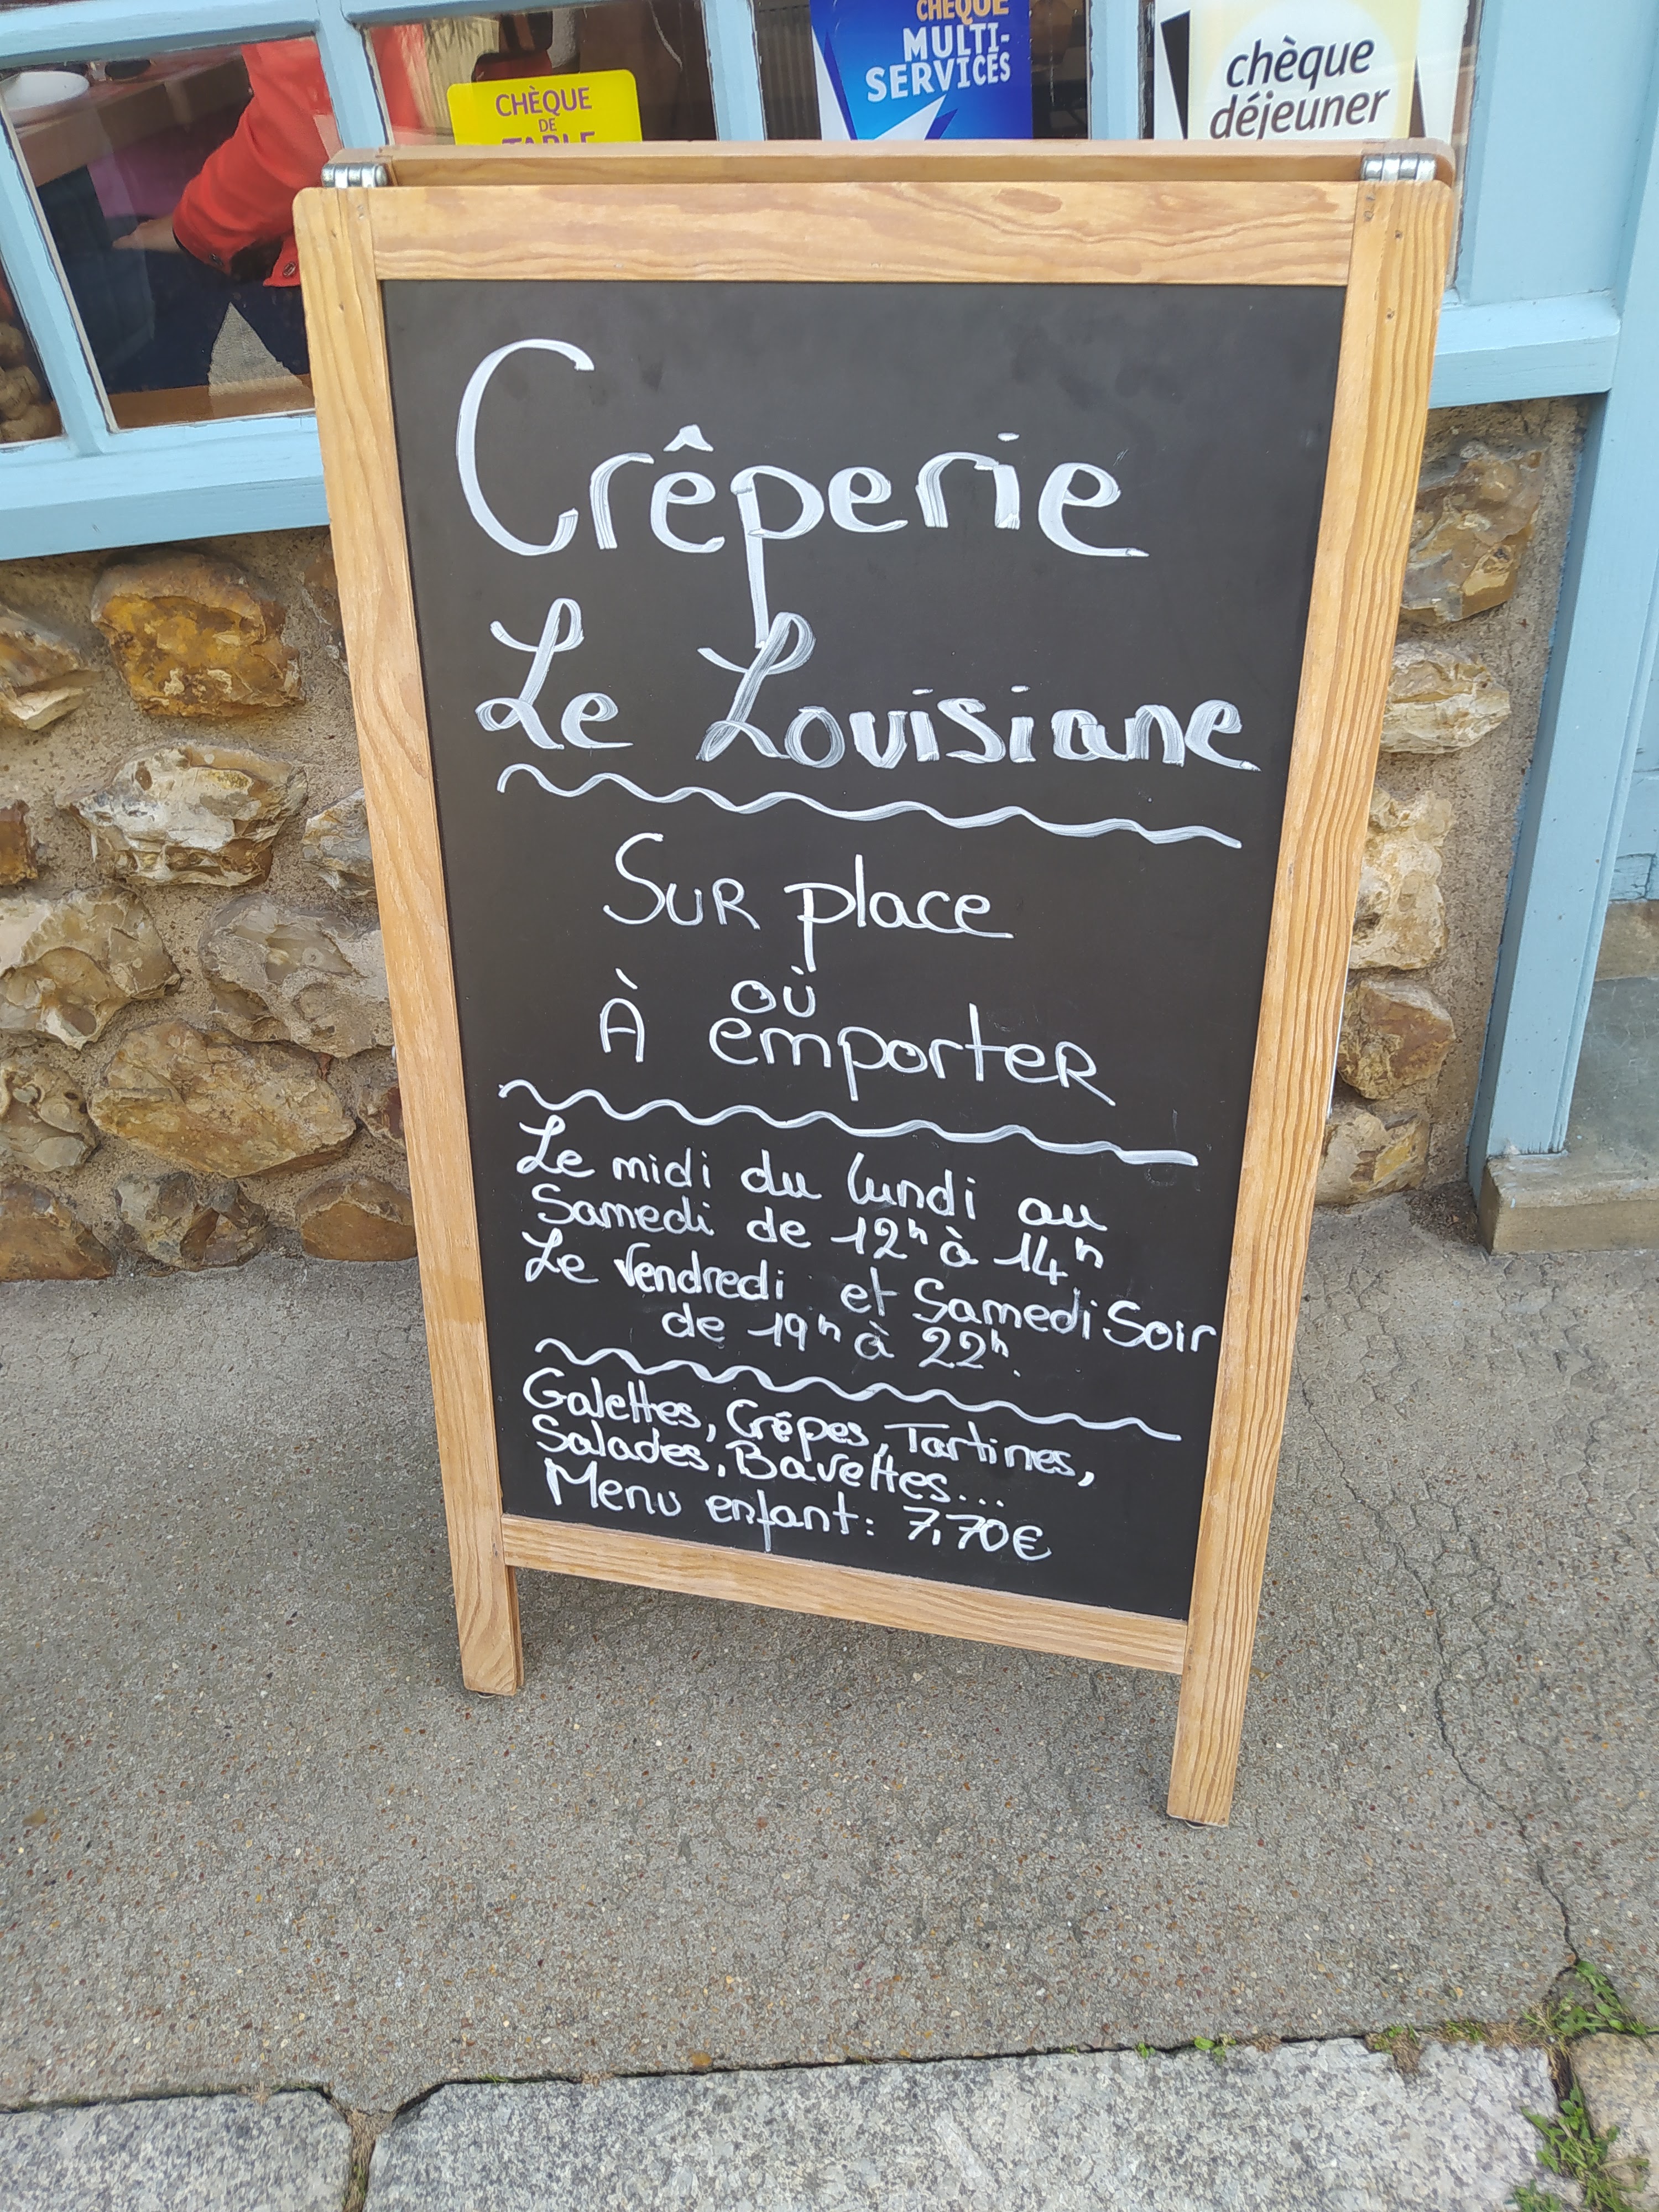 CHÈQUE
DE
TABLE
CHÈQUE
MULTI-
SERVICES
chèque
déjeuner
Crêperie
Le Louisiane
Sur place
où
À emporter
Le midi du lundi au
Samedi de 12h à 14h
Le Vendredi et Samedi Soir
de 19h à 22h.
Galettes, Crêpes, Tartines,
Salades, Bavettes...
Menu enfant: 7,70€